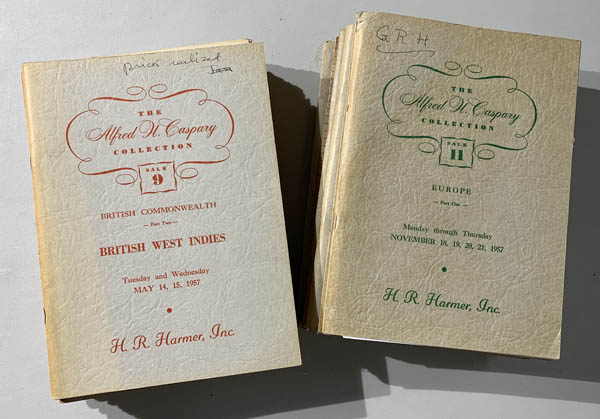 prices realized
THE
Alfred H. Caspary
COLLECTION
SALE
9
BRITISH COMMONWEALTH
— Part Two —
BRITISH WEST INDIES
Tuesday and Wednesday
MAY 14, 15, 1957
H. R. Harmer, Inc.
G R H
THE
Alfred H. Caspary
COLLECTION
SALE
11
EUROPE
— Part One —
Monday through Thursday
NOVEMBER 18, 19, 20, 21, 1957
H. R. Harmer, Inc.